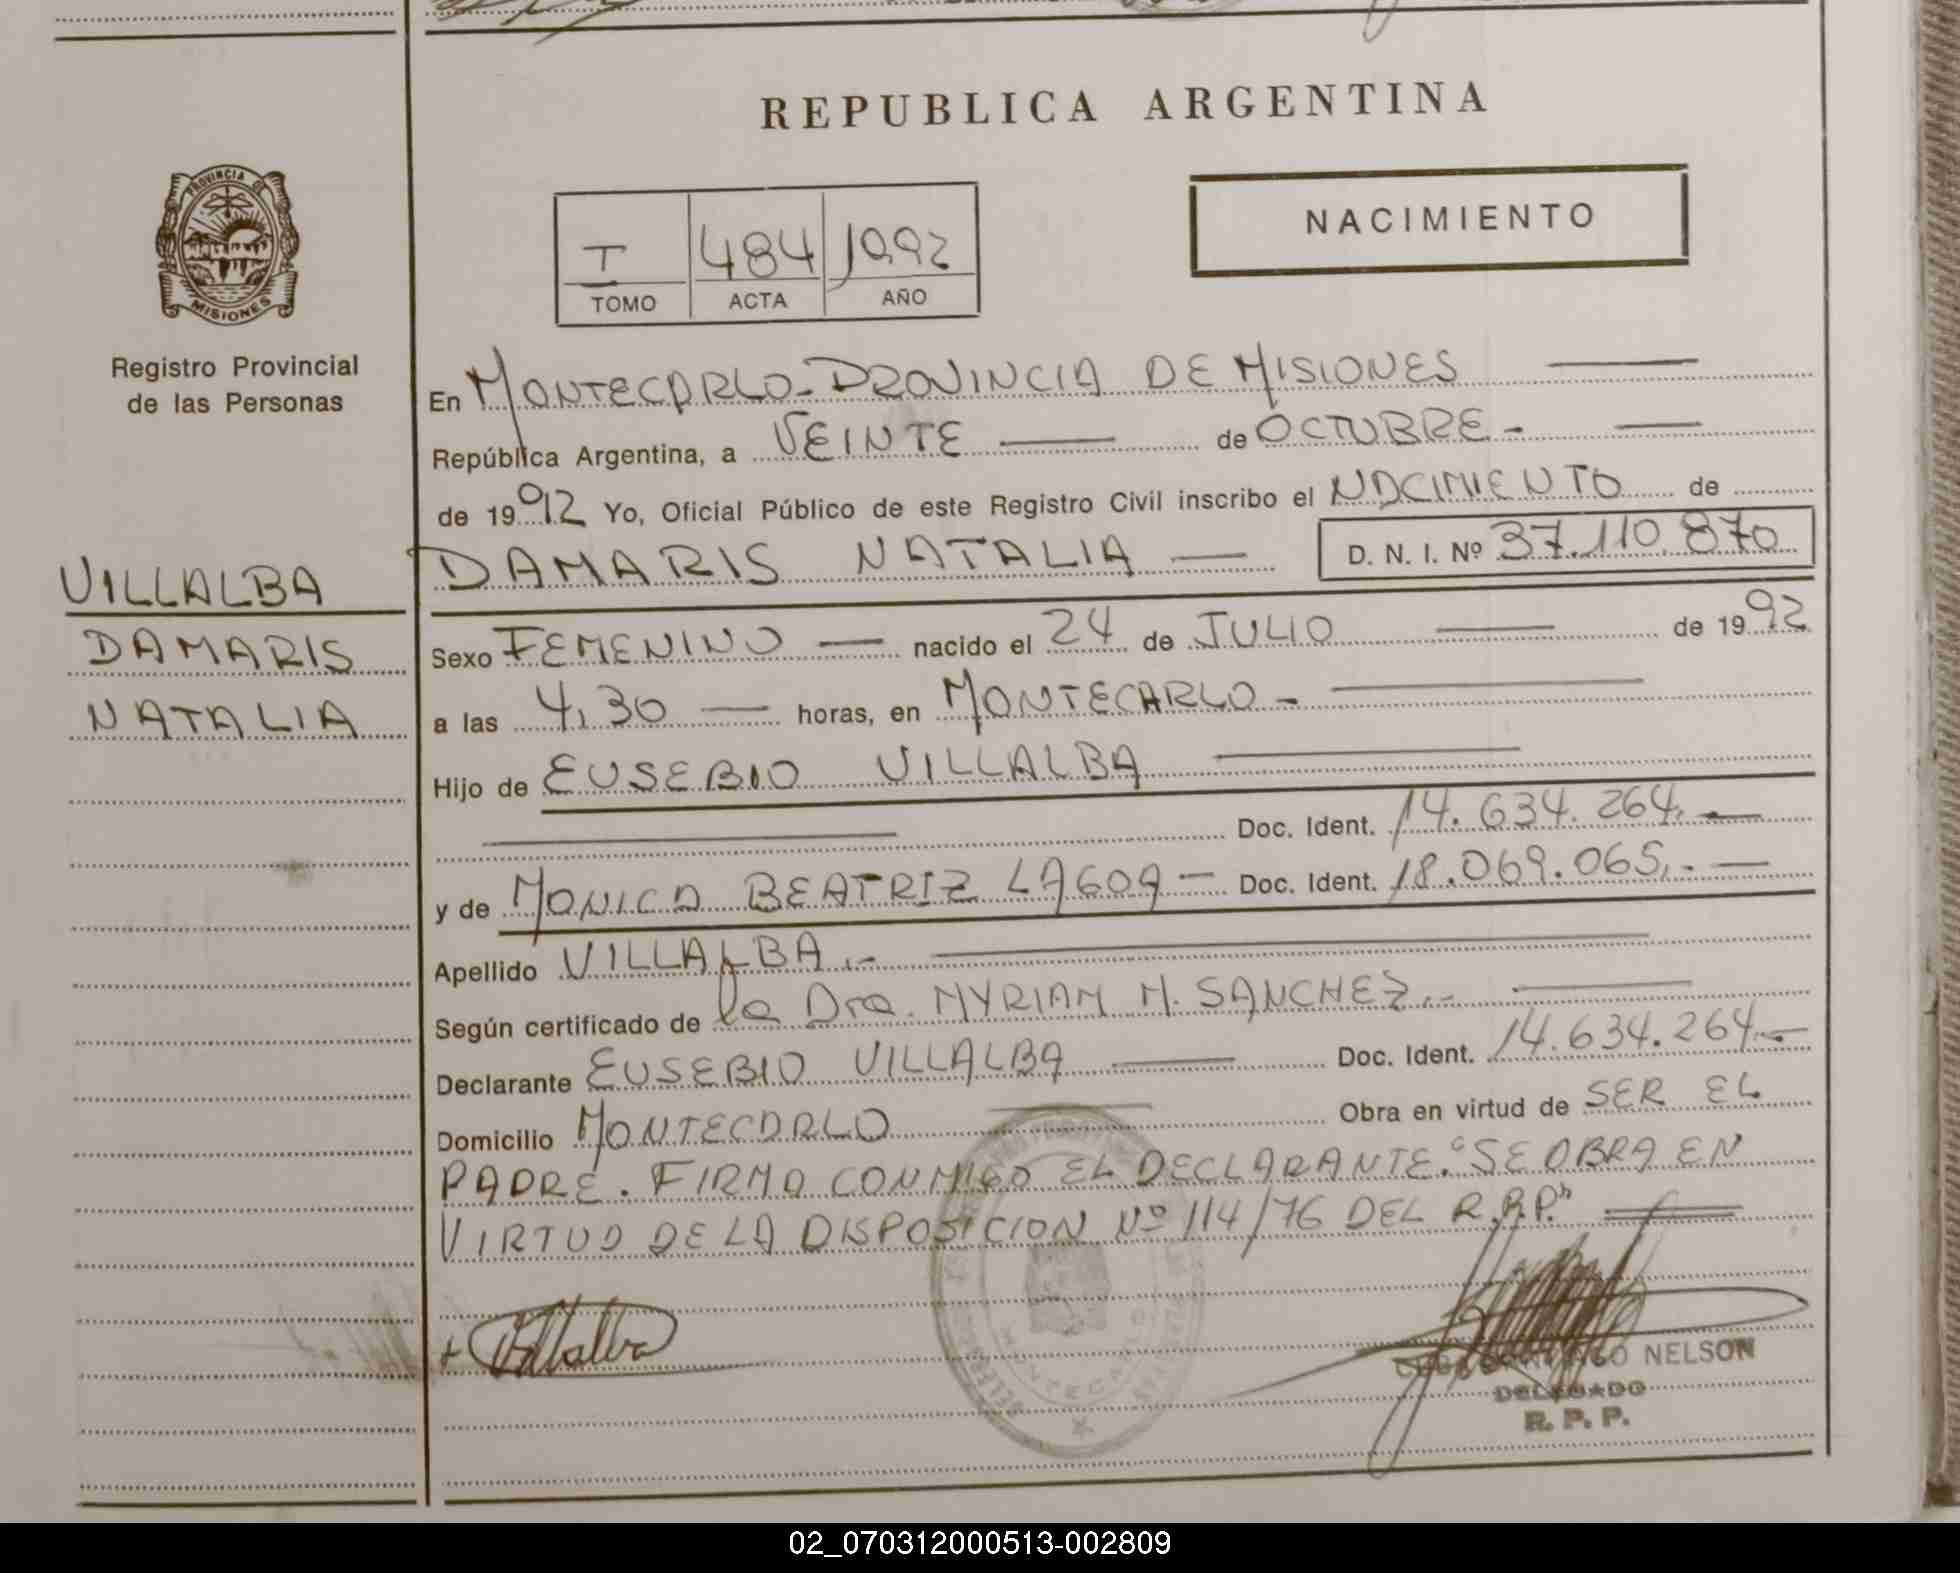 REPUBLICA ARGENTINA
PROVINCIA DE
MISIONES
Registro Provincial
de las Personas
VILLALBA
DAMARIS
NATALIA
T 484 1992
TOMO ACTA AÑO
NACIMIENTO
En MONTECARLO-PROVINCIA DE MISIONES
República Argentina, a VEINTE de OCTUBRE-
de 1992 Yo, Oficial Público de este Registro Civil inscribo el NACIMIENTO de
DAMARIS NATALIA — D. N. I. Nº 37.110.870
Sexo FEMENINO — nacido el 24 de JULIO — de 1992
a las 4,30 — horas, en MONTECARLO-
Hijo de EUSEBIO VILLALBA
Doc. Ident. 14.634.264.-
y de MONICA BEATRIZ LAGOA — Doc. Ident. 18.069.065,.-
Apellido VILLALBA.-
Según certificado de la Dra. MYRIAM M. SANCHEZ.-
Declarante EUSEBIO VILLALBA — Doc. Ident. 14.634.264.-
Domicilio MONTECARLO — Obra en virtud de SER EL
PADRE. FIRMA CONMIGO EL DECLARANTE. "SE OBRA EN
VIRTUD DE LA DISPOSICION Nº 114/76 DEL R.P.P."
+ Villalba
MONTECARLO
NELSON
DELEGADO
R. P. P.
02_070312000513-002809